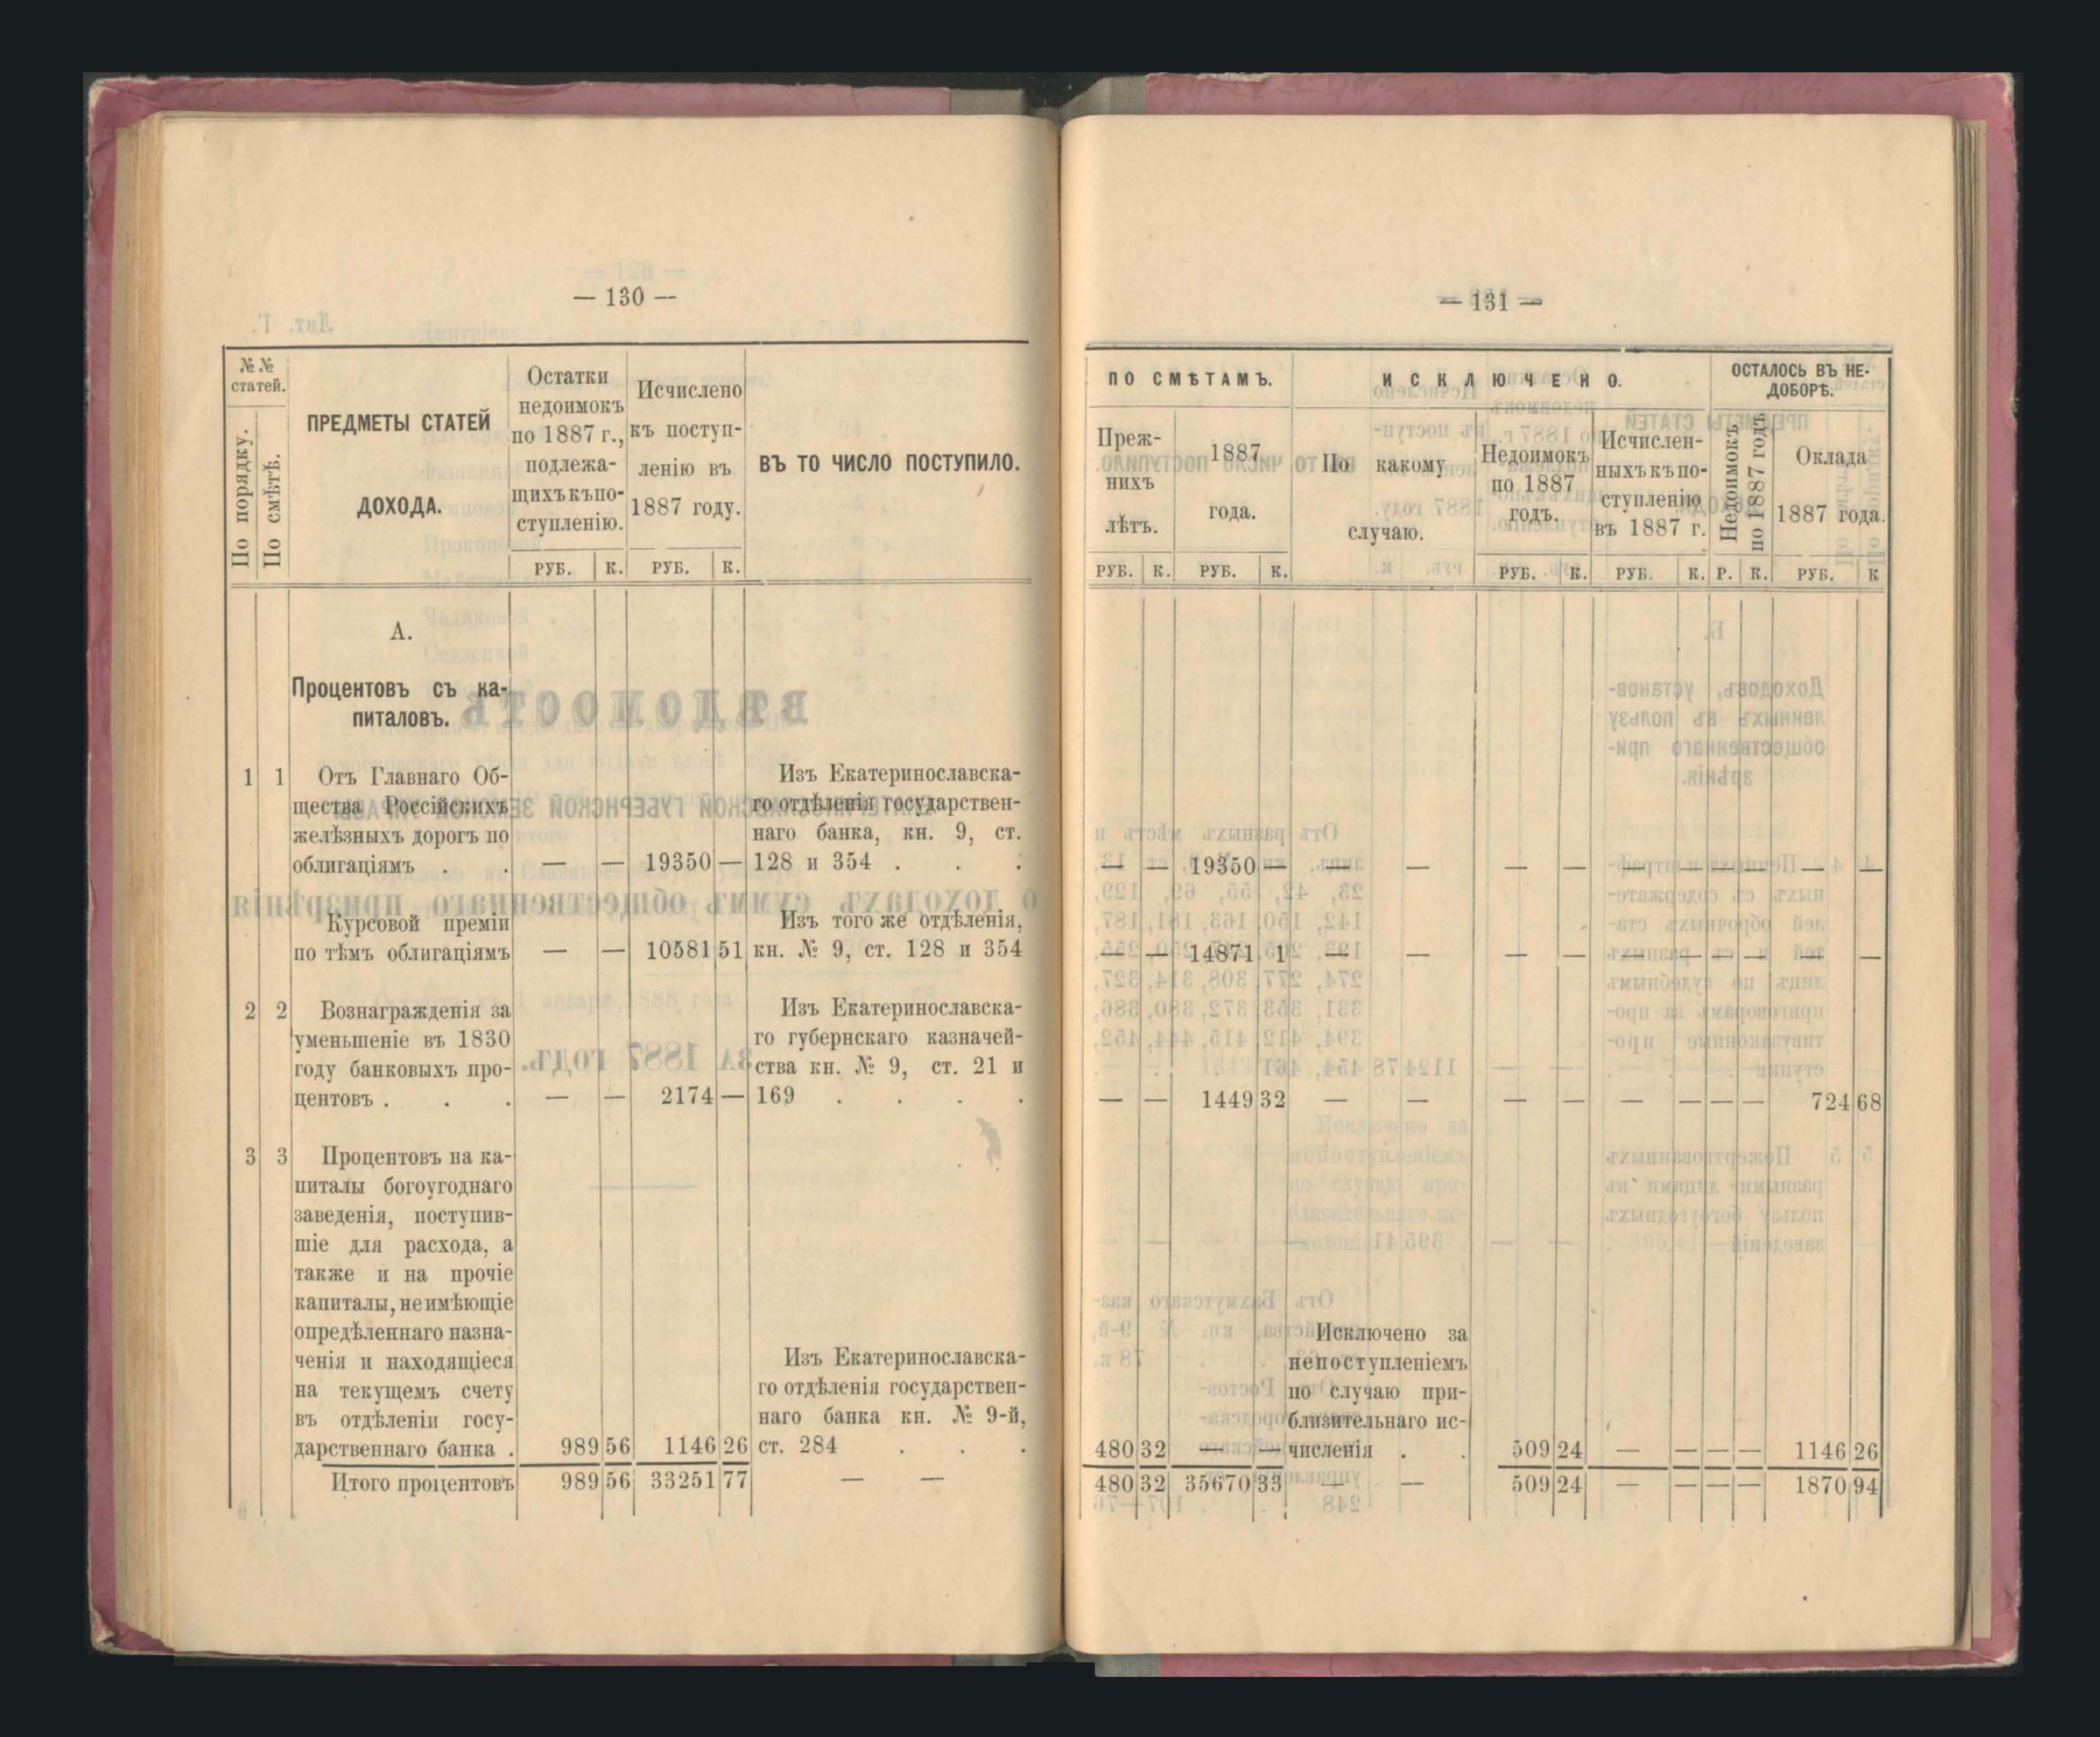 — 130 —
№№ статей.
По порядку.
По смѣтѣ.
ПРЕДМЕТЫ СТАТЕЙ
ДОХОДА.
Остатки
недоимокъ
по 1887 г.,
подлежа-
щихъ къ по-
ступленію.
Исчислено
къ поступ-
ленію въ
1887 году.
ВЪ ТО ЧИСЛО ПОСТУПИЛО.
РУБ. К. РУБ. К.
А.
Процентовъ съ ка-
питаловъ.
1 1 Отъ Главнаго Об-
щества Россійскихъ
желѣзныхъ дорогъ по
облигаціямъ . . — — 19350 —
Изъ Екатеринославска-
го отдѣленія государствен-
наго банка, кн. 9, ст.
128 и 354 . . .
Курсовой преміи
по тѣмъ облигаціямъ — — 10581 51
Изъ того же отдѣленія,
кн. № 9, ст. 128 и 354
2 2 Вознагражденія за
уменьшеніе въ 1830
году банковыхъ про-
центовъ . . . — — 2174 —
Изъ Екатеринославска-
го губернскаго казначей-
ства кн. № 9, ст. 21 и
169 . . . .
3 3 Процентовъ на ка-
питалы богоугоднаго
заведенія, поступив-
шіе для расхода, а
также и на прочіе
капиталы, не имѣющіе
опредѣленнаго назна-
ченія и находящіеся
на текущемъ счету
въ отдѣленіи госу-
дарственнаго банка . 989 56 1146 26
Изъ Екатеринославска-
го отдѣленія государствен-
наго банка кн. № 9-й,
ст. 284 . . .
Итого процентовъ 989 56 33251 77 — —
— 131 —
ПО СМѢТАМЪ.
ИСКЛЮЧЕНО.
ОСТАЛОСЬ ВЪ НЕ-
ДОБОРѢ.
Преж-
нихъ
лѣтъ.
1887
года.
По какому
случаю.
Недоимокъ
по 1887
годъ.
Исчислен-
ныхъ къ по-
ступленію
въ 1887 г.
Недоимокъ
по 1887 годъ
Оклада
1887 года.
РУБ. К. РУБ. К. РУБ. К. РУБ. К. Р. К. РУБ. К
— — 19350 — — — — — — — — — — —
— — 14871 1 — — — — — — — — — —
— — 1449 32 — — — — — — — — 724 68
Исключено за
непоступленіемъ
по случаю при-
близительнаго ис-
480 32 — — численія . . 509 24 — — — — 1146 26
480 32 35670 33 — — 509 24 — — — — 1870 94